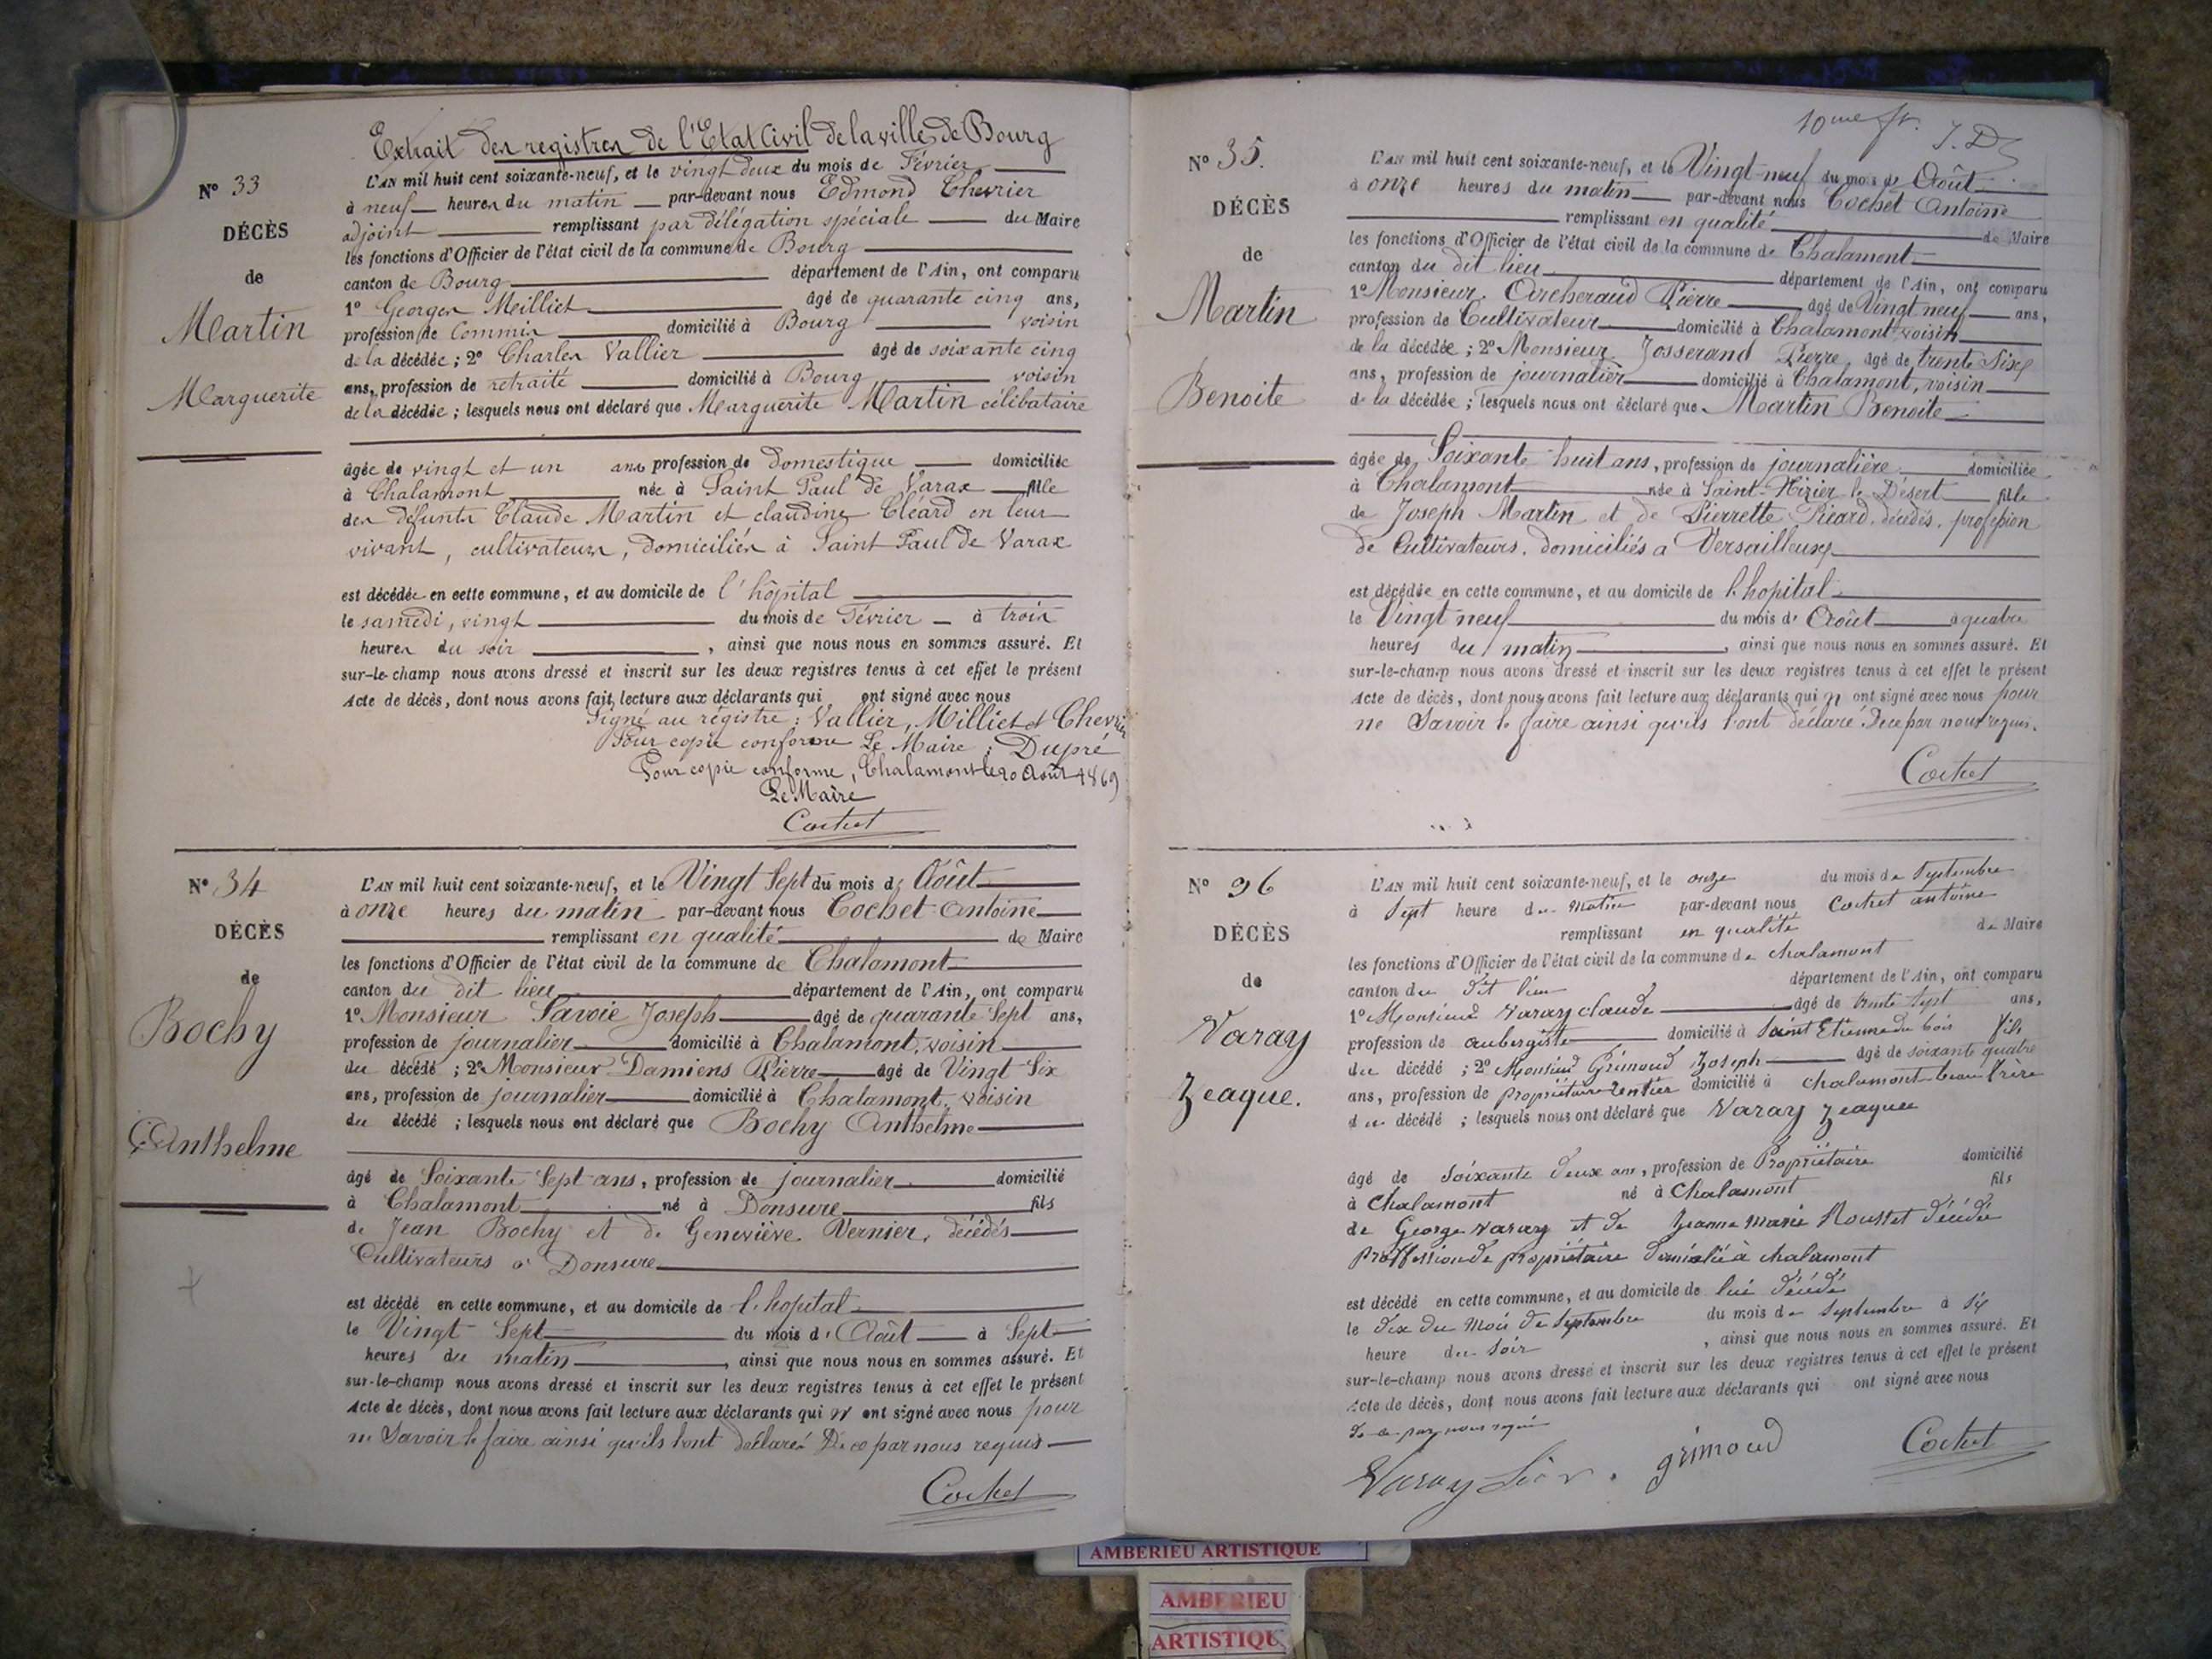 Extrait des registres de l'Etat Civil de la ville de Bourg
N° 33
DÉCÈS
de
Martin
Marguerite
L'AN mil huit cent soixante-neuf, et le vingt deux du mois de Février
à neuf heures du matin par-devant nous Edmond Chevrier
adjoint remplissant par délégation spéciale du Maire
les fonctions d'Officier de l'état civil de la commune de Bourg
canton de Bourg département de l'Ain, ont comparu
1° Georges Meilliet âgé de quarante cinq ans,
profession de Commis domicilié à Bourg voisin
de la décédée ; 2° Charles Vallier âgé de soixante cinq
ans, profession de retraité domicilié à Bourg voisin
de la décédée ; lesquels nous ont déclaré que Marguerite Martin célibataire
âgée de vingt et un ans profession de domestique domiciliée
à Chalamont née à Saint Paul de Varax fille
des défunts Claude Martin et claudine Cléard en leur
vivant, cultivateurs, domiciliés à Saint Paul de Varax
est décédée en cette commune, et au domicile de l'hôpital
le samedi, vingt du mois de Février à trois
heures du soir , ainsi que nous nous en sommes assuré. Et
sur-le-champ nous avons dressé et inscrit sur les deux registres tenus à cet effet le présent
Acte de décès, dont nous avons fait lecture aux déclarants qui ont signé avec nous
Signé au régistre : Vallier, Milliet et Chevrier
Pour copie conforme Le Maire : Dupré
Pour copie conforme, Chalamont le 20 Août 1869
Le Maire
Cochet
N° 34
DÉCÈS
de
Bochy
Anthelme
L'AN mil huit cent soixante-neuf, et le Vingt Sept du mois d' Août
à onze heures du matin par-devant nous Cochet Antoine
remplissant en qualité de Maire
les fonctions d'Officier de l'état civil de la commune de Chalamont
canton du dit lieu département de l'Ain, ont comparu
1° Monsieur Savoie Joseph âgé de quarante Sept ans,
profession de journalier domicilié à Chalamont, voisin
du décédé ; 2° Monsieur Damiens Pierre âgé de Vingt Six
ans, profession de journalier domicilié à Chalamont, voisin
du décédé ; lesquels nous ont déclaré que Bochy Anthelme
âgé de Soixante Sept ans, profession de journalier domicilié
à Chalamont né à Donsure fils
de Jean Bochy et de Geneviève Vernier, décédés
Cultivateurs à Donsure
est décédé en cette commune, et au domicile de l'hopital
le Vingt Sept du mois d' Août à Sept
heures du matin , ainsi que nous nous en sommes assuré. Et
sur-le-champ nous avons dressé et inscrit sur les deux registres tenus à cet effet le présent
Acte de décès, dont nous avons fait lecture aux déclarants qui n' ont signé avec nous pour
ne Savoir le faire ainsi qu'ils l'ont déclaré De ce par nous requis
Cochet
10me ft. J.D
N° 35.
DÉCÈS
de
Martin
Benoite
L'AN mil huit cent soixante-neuf, et le Vingt-neuf du mois de Août
à onze heures du matin par-devant nous Cochet Antoine
remplissant en qualité de Maire
les fonctions d'Officier de l'état civil de la commune de Chalamont
canton du dit lieu département de l'Ain, ont comparu
1° Monsieur Archeraud Pierre âgé de Vingt neuf ans,
profession de Cultivateur domicilié à Chalamont voisin
de la décédée ; 2° Monsieur Josserand Pierre, âgé de trente Six
ans, profession de journalier domicilié à Chalamont, voisin
de la décédée ; lesquels nous ont déclaré que Martin Benoite
âgée de Soixante huit ans, profession de journalière domiciliée
à Chalamont née à Saint-Nizier le Désert fille
de Joseph Martin et de Pierrette Picard, décédés, profession
de Cultivateurs, domiciliés a Versailleux
est décédée en cette commune, et au domicile de l'hopital
le Vingt neuf du mois d' Août à quatre
heures du matin , ainsi que nous nous en sommes assuré. Et
sur-le-champ nous avons dressé et inscrit sur les deux registres tenus à cet effet le présent
Acte de décès, dont nous avons fait lecture aux déclarants qui n' ont signé avec nous pour
ne Savoir le faire ainsi qu'ils l'ont déclaré De ce par nous requis.
Cochet
N° 36
DÉCÈS
de
Varay
Zeaque.
L'AN mil huit cent soixante-neuf, et le onze du mois de Septembre
à Sept heure du matin par-devant nous Cochet antoine
remplissant en qualité de Maire
les fonctions d'Officier de l'état civil de la commune de chalamont
canton du dit lieu département de l'Ain, ont comparu
1° Monsieur Varay claude âgé de trente sept ans,
profession de aubergiste domicilié à Saint Etienne du bois fils
du décédé ; 2° Monsieur Grimoud Zoseph âgé de soixante quatre
ans, profession de propriétaire Rentier domicilié à chalamont beau frère
du décédé ; lesquels nous ont déclaré que Varay Zeaque
âgé de soixante deux ans, profession de Propriétaire domicilié
à Chalamont né à Chalamont fils
de George Varay et de Zeanne marie Mousset décédée
proffession de propriétaire domicilié à chalamont
est décédé en cette commune, et au domicile de lui décédé
le dix du mois de Septembre du mois de Septembre à Six
heure du soir , ainsi que nous nous en sommes assuré. Et
sur-le-champ nous avons dressé et inscrit sur les deux registres tenus à cet effet le présent
Acte de décès, dont nous avons fait lecture aux déclarants qui ont signé avec nous
de ce par nous requis
Varay grimoud Cochet
AMBERIEU ARTISTIQUE
AMBERIEU
ARTISTIQU